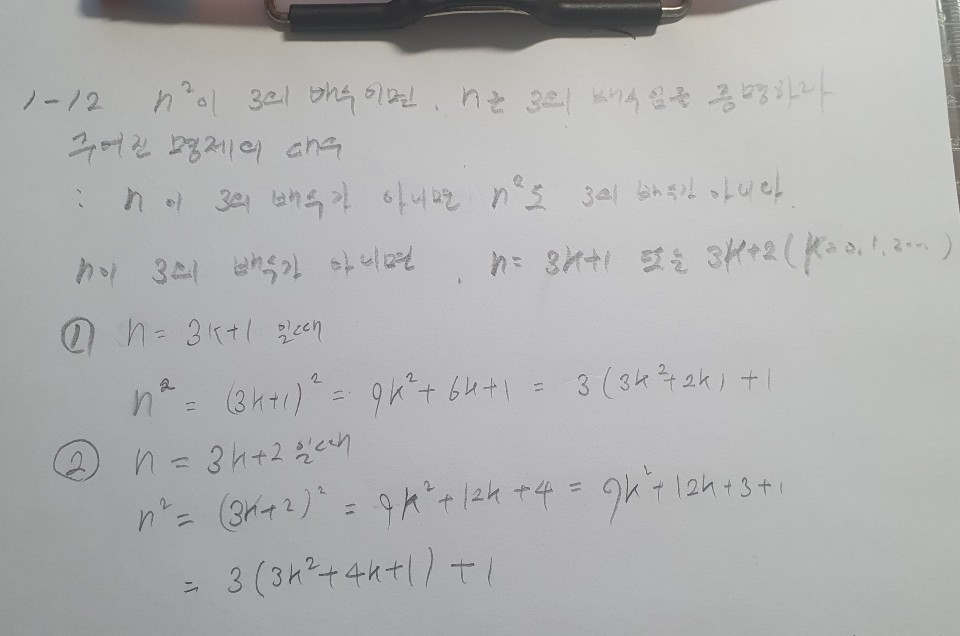 1-12 n²이 3의 배수이면, n은 3의 배수임을 증명하라
주어진 명제의 대우
: n이 3의 배수가 아니면 n²도 3의 배수가 아니다.
n이 3의 배수가 아니면, n = 3k+1 또는 3k+2 (k=0, 1, 2...)
① n = 3k+1 일때
n² = (3k+1)² = 9k² + 6k+1 = 3(3k²+2k)+1
② n = 3k+2 일때
n² = (3k+2)² = 9k²+12k+4 = 9k²+12k+3+1
= 3(3k²+4k+1)+1